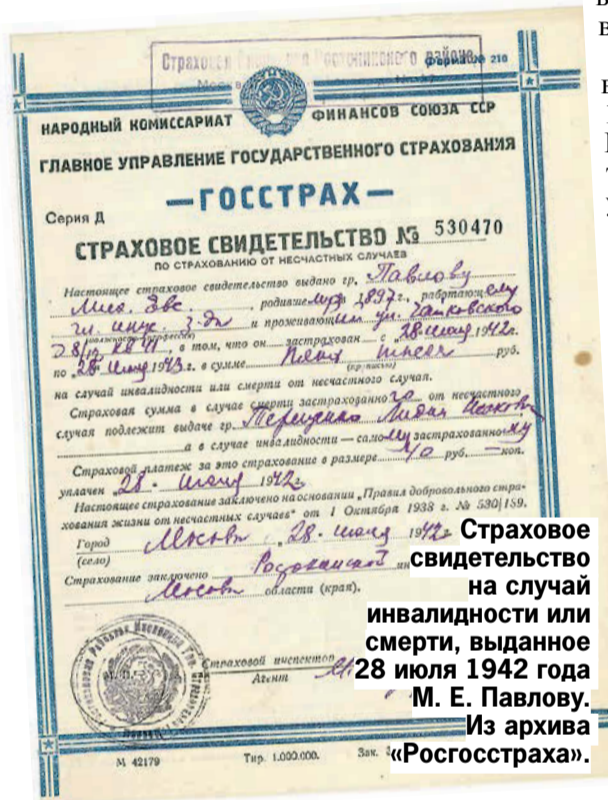 Страховая Ростокинского района
Форма № 210
НАРОДНЫЙ КОМИССАРИАТ ФИНАНСОВ СОЮЗА ССР
ГЛАВНОЕ УПРАВЛЕНИЕ ГОСУДАРСТВЕННОГО СТРАХОВАНИЯ
—ГОССТРАХ—
Серия Д
СТРАХОВОЕ СВИДЕТЕЛЬСТВО № 530470
ПО СТРАХОВАНИЮ ОТ НЕСЧАСТНЫХ СЛУЧАЕВ
Настоящее страховое свидетельство выдано гр. Павлову
родивше 1897 г., работающему
гл. инж. з-да и проживающим ул. Чайковского
в том, что он застрахован с „28 1942 г.
по „28 1943 г. в сумме Пять тысяч руб.
(прописью)
на случай инвалидности или смерти от несчастного случая.
Страховая сумма в случае смерти застрахованного от несчастного
случая подлежит выдаче гр. Терещенко Лидия
а в случае инвалидности — самому застрахованному
Страховой платеж за это страхование в размере руб. — коп.
уплачен „28 1942 г.
Настоящее страхование заключено на основании „Правил добровольного стра-
хования жизни от несчастных случаев" от 1 Октября 1938 г. № 530/189.
Город Москва „28. 1942
(село)
Страхование заключено Ростокинской
Москва области (края).
Страховой инспектор
Агент
М 42179 Тир. 1.000.000. Зак.
Страховое
свидетельство
на случай
инвалидности или
смерти, выданное
28 июля 1942 года
М. Е. Павлову.
Из архива
«Росгосстраха».